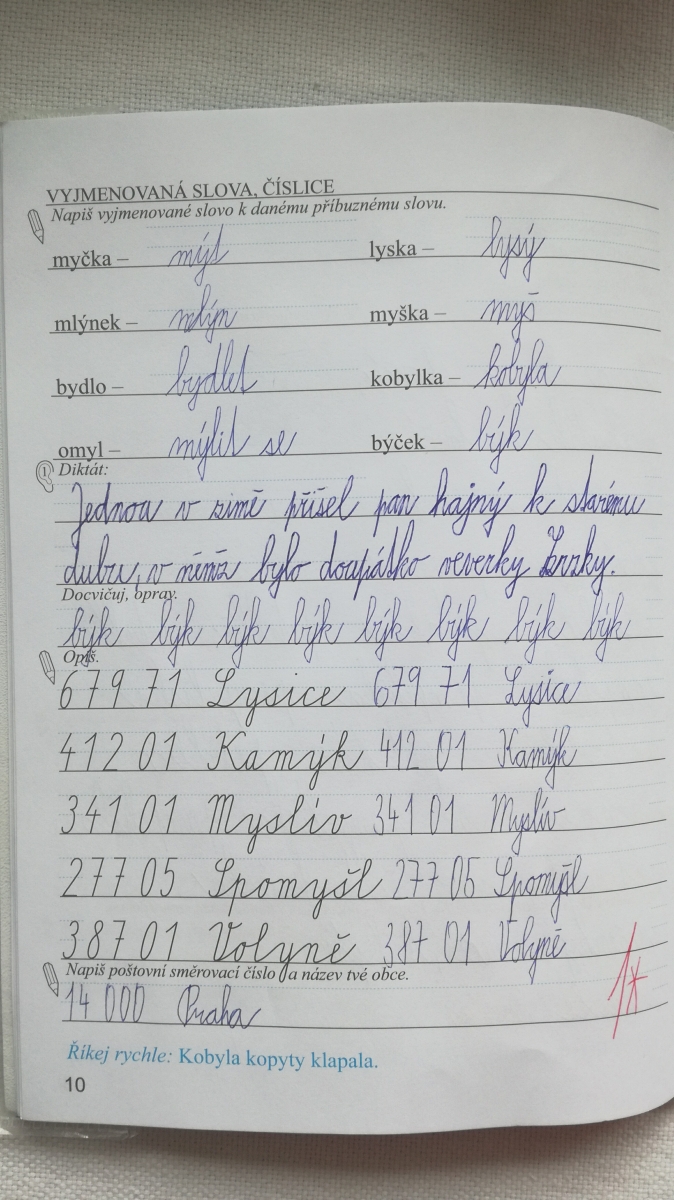 VYJMENOVANÁ SLOVA, ČÍSLICE
Napiš vyjmenované slovo k danému příbuznému slovu.
myčka – mýt lyska – lysý
mlýnek – mlýn myška – myš
bydlo – bydlet kobylka – kobyla
omyl – mýlit se býček – býk
1 Diktát:
Jednou v zimě přišel pan hajný k starému
dubu, v němž bylo doupátko veverky Zrzky.
Docvičuj, oprav.
býk býk býk býk býk býk býk býk
Opiš.
679 71 Lysice 679 71 Lysice
412 01 Kamýk 412 01 Kamýk
341 01 Myslív 341 01 Myslív
277 05 Spomyšl 277 05 Spomyšl
387 01 Volyně 387 01 Volyně
Napiš poštovní směrovací číslo a název tvé obce.
14 000 Praha
1*
Říkej rychle: Kobyla kopyty klapala.
10